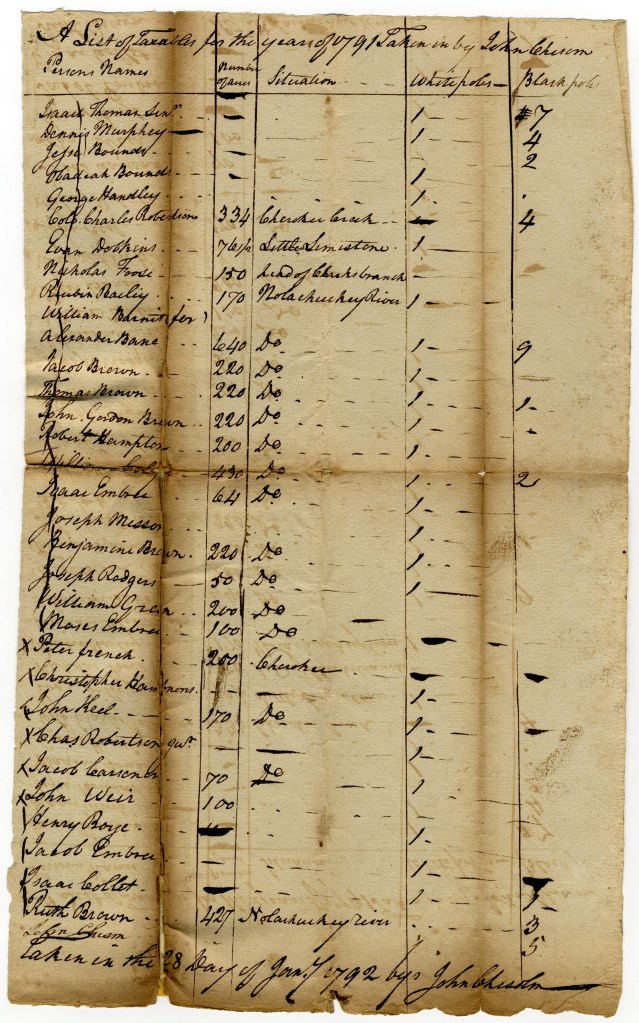 A List of Taxables for the years of 1791 Taken in by John Chisom
Persons Names Number of acres Situation White poles Black poles
Isaac Thomas Senr. — 1 7
Dennis Murphey — 1 4
Jesse Bounds — 1 2
Obadiah Bounds — 1
George Handley 1
Colo. Charles Robertson 334 Cherokee Creek — 4
Evan Dobkins 76 1/2 Little Limestone 1
Nicholas Foose 150 head of Clarks branch
Reubin Bailey 170 Nolachuckey River 1
William Barnit (for)
Alexander Bane 640 Do 1 9
Jacob Brown 220 Do 1
Thomas Brown 220 Do 1 1
John Gordon Brown 220 Do 1
Robert Hampton 200 Do 1
William 430 Do 1 2
Isaac Embree 64 Do 1
Joseph Messor 1
Benjamine Brown 220 Do 1
Joseph Rodgers 50 Do 1
William Green 200 Do
Moses Embree 100 Do
X Peter french 200 Cherokee —
X Christopher Hammons — 1
John Keel 170 Do 1
X Chas Robertson — 1
X Jacob Carson 70 Do 1
X John Weir 100 1
Henry Boye — 1
Jacob Embree — 1
Isaac Collet — 1 1
Ruth Brown 427 Nolachuckey river 3
John Chisom 5
Taken in the 28 Day of Jany 1792 by John Chisolm